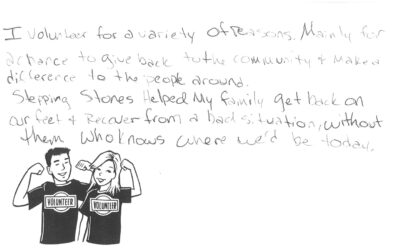 I volunteer for a variety of reasons. Mainly for
a chance to give back to the community & make a
difference to the people around.
Stepping Stones Helped My family get back on
our feet & Recover from a bad situation, without
them who knows where we'd be today.
VOLUNTEER
VOLUNTEER